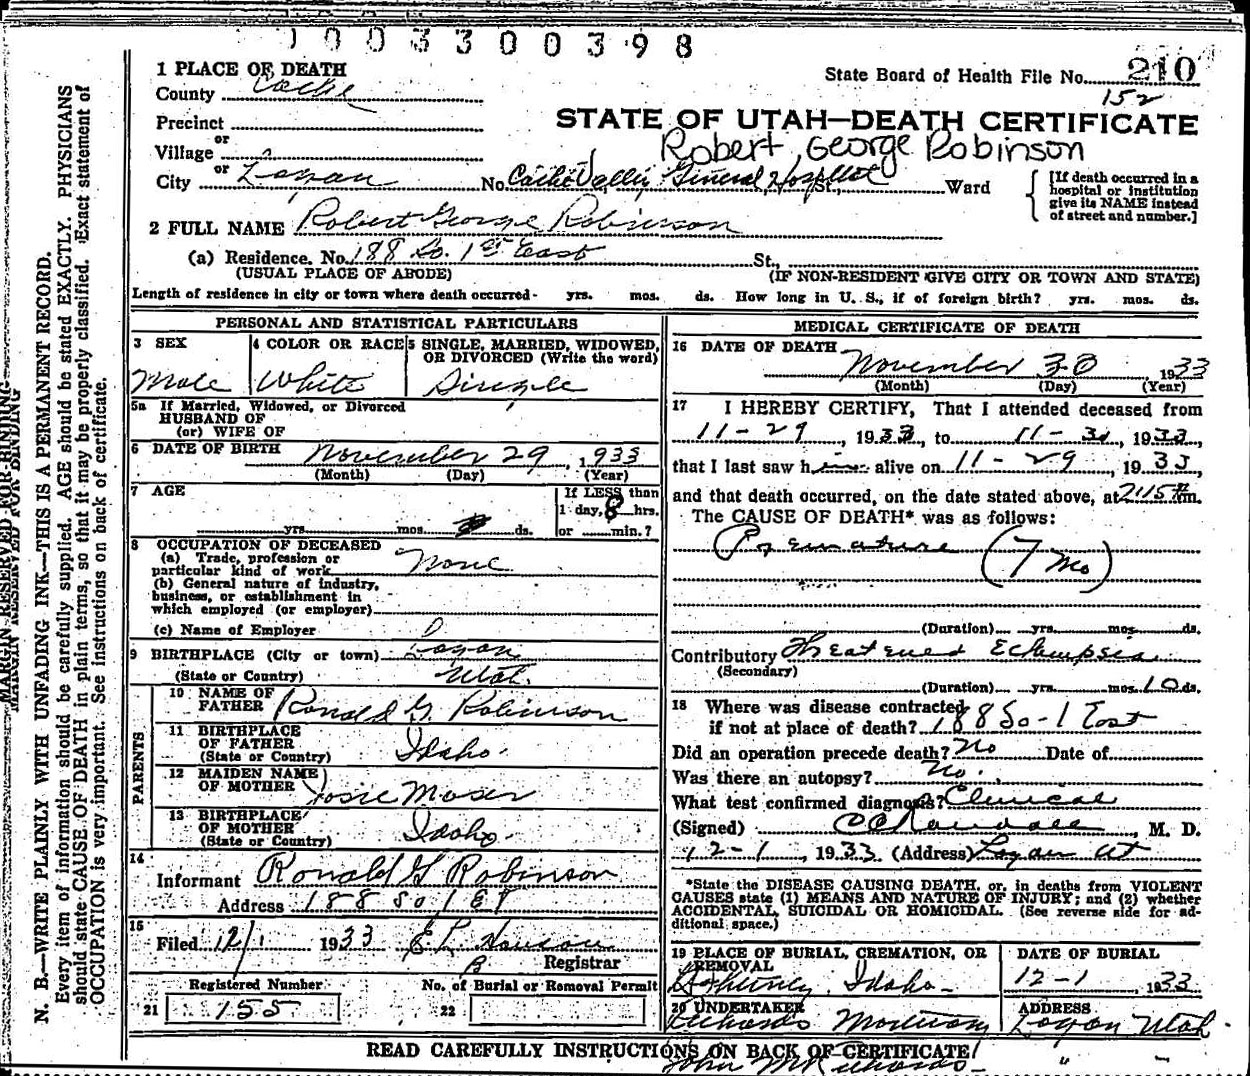 0003300398
1 PLACE OF DEATH
State Board of Health File No. 210
County Cache
152
Precinct
STATE OF UTAH—DEATH CERTIFICATE
or
Robert George Robinson
Village
or
City Logan No. Cache Valley General Hospital St., Ward
[If death occurred in a
hospital or institution
give its NAME instead
of street and number.]
2 FULL NAME Robert George Robinson
(a) Residence. No. 188 So. 1st East St.,
(USUAL PLACE OF ABODE) (IF NON-RESIDENT GIVE CITY OR TOWN AND STATE)
Length of residence in city or town where death occurred- yrs. mos. ds. How long in U. S., if of foreign birth? yrs. mos. ds.
PERSONAL AND STATISTICAL PARTICULARS
3 SEX
Male
4 COLOR OR RACE
White
5 SINGLE, MARRIED, WIDOWED,
OR DIVORCED (Write the word)
Single
5a If Married, Widowed, or Divorced
HUSBAND OF
(or) WIFE OF
6 DATE OF BIRTH November 29, 1933
(Month) (Day) (Year)
7 AGE
yrs. mos. ds.
If LESS than
1 day, 8 hrs.
or min.?
8 OCCUPATION OF DECEASED
(a) Trade, profession or
particular kind of work None
(b) General nature of industry,
business, or establishment in
which employed (or employer)
(c) Name of Employer
9 BIRTHPLACE (City or town) Logan
(State or Country) Utah.
PARENTS
10 NAME OF
FATHER Ronald G. Robinson
11 BIRTHPLACE
OF FATHER
(State or Country) Idaho.
12 MAIDEN NAME
OF MOTHER Rosie Moser
13 BIRTHPLACE
OF MOTHER
(State or Country) Idaho.
14
Informant Ronald G Robinson
Address 188 So 1 E
15
Filed 12/1 1933
Registrar
Registered Number
21 155
No. of Burial or Removal Permit
22
MEDICAL CERTIFICATE OF DEATH
16 DATE OF DEATH
November 30, 1933
(Month) (Day) (Year)
17 I HEREBY CERTIFY, That I attended deceased from
11-29, 1933, to 11-30, 1933
that I last saw him alive on 11-29, 1933,
and that death occurred, on the date stated above, at 2:15 m.
The CAUSE OF DEATH* was as follows:
Premature (7 mo)
(Duration) yrs. mos. ds.
Contributory Threatened Eclampsia
(Secondary)
(Duration) yrs. mos. 10 ds.
18 Where was disease contracted
if not at place of death? 188 So-1 East
Did an operation precede death? No Date of
Was there an autopsy? No.
What test confirmed diagnosis? Clinical
(Signed) M. D.
12-1, 1933 (Address) Logan Ut
*State the DISEASE CAUSING DEATH, or, in deaths from VIOLENT
CAUSES state (1) MEANS AND NATURE OF INJURY; and (2) whether
ACCIDENTAL, SUICIDAL OR HOMICIDAL. (See reverse side for ad-
ditional space.)
19 PLACE OF BURIAL, CREMATION, OR
REMOVAL
Idaho-
DATE OF BURIAL
12-1, 1933
20 UNDERTAKER
Richards Mortuary
John M Richards-
ADDRESS
Logan Utah.
" "
READ CAREFULLY INSTRUCTIONS ON BACK OF CERTIFICATE
MARGIN RESERVED FOR BINDING
MARGIN RESERVED FOR BINDING
N. B.—WRITE PLAINLY WITH UNFADING INK—THIS IS A PERMANENT RECORD.
Every item of information should be carefully supplied. AGE should be stated EXACTLY. PHYSICIANS
should state CAUSE OF DEATH in plain terms, so that it may be properly classified. Exact statement of
OCCUPATION is very important. See instructions on back of certificate.